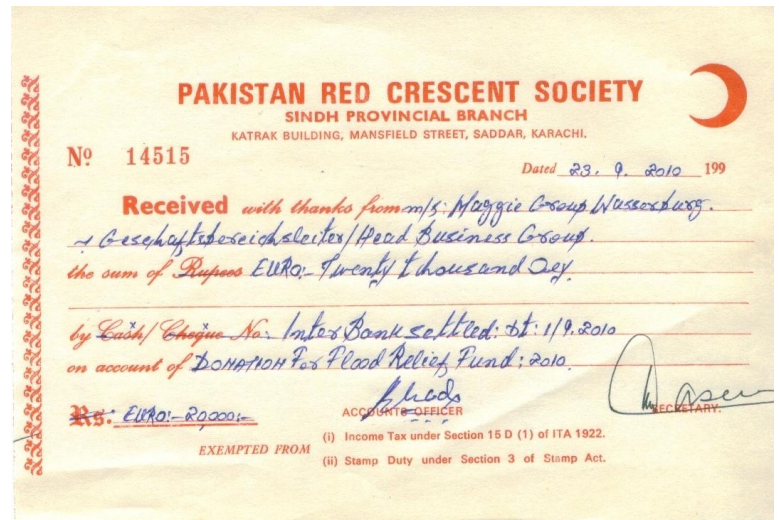 PAKISTAN RED CRESCENT SOCIETY
SINDH PROVINCIAL BRANCH
KATRAK BUILDING, MANSFIELD STREET, SADDAR, KARACHI.
No 14515
Dated 23. 9. 2010 199
Received with thanks from m/s: Maggie Group Wasserburg.
Geschaftsbereichsleiter/Head Business Group.
the sum of Rupees EURO:- Twenty thousand Only
by Cash/ Cheque No: Inter Bank settled: Dt: 1/9.2010
on account of DONATION For Flood Relief Fund: 2010.
Rs: EURO:- 20,000:-
ACCOUNTS OFFICER
SECRETARY.
EXEMPTED FROM
(i) Income Tax under Section 15 D (1) of ITA 1922.
(ii) Stamp Duty under Section 3 of Stamp Act.